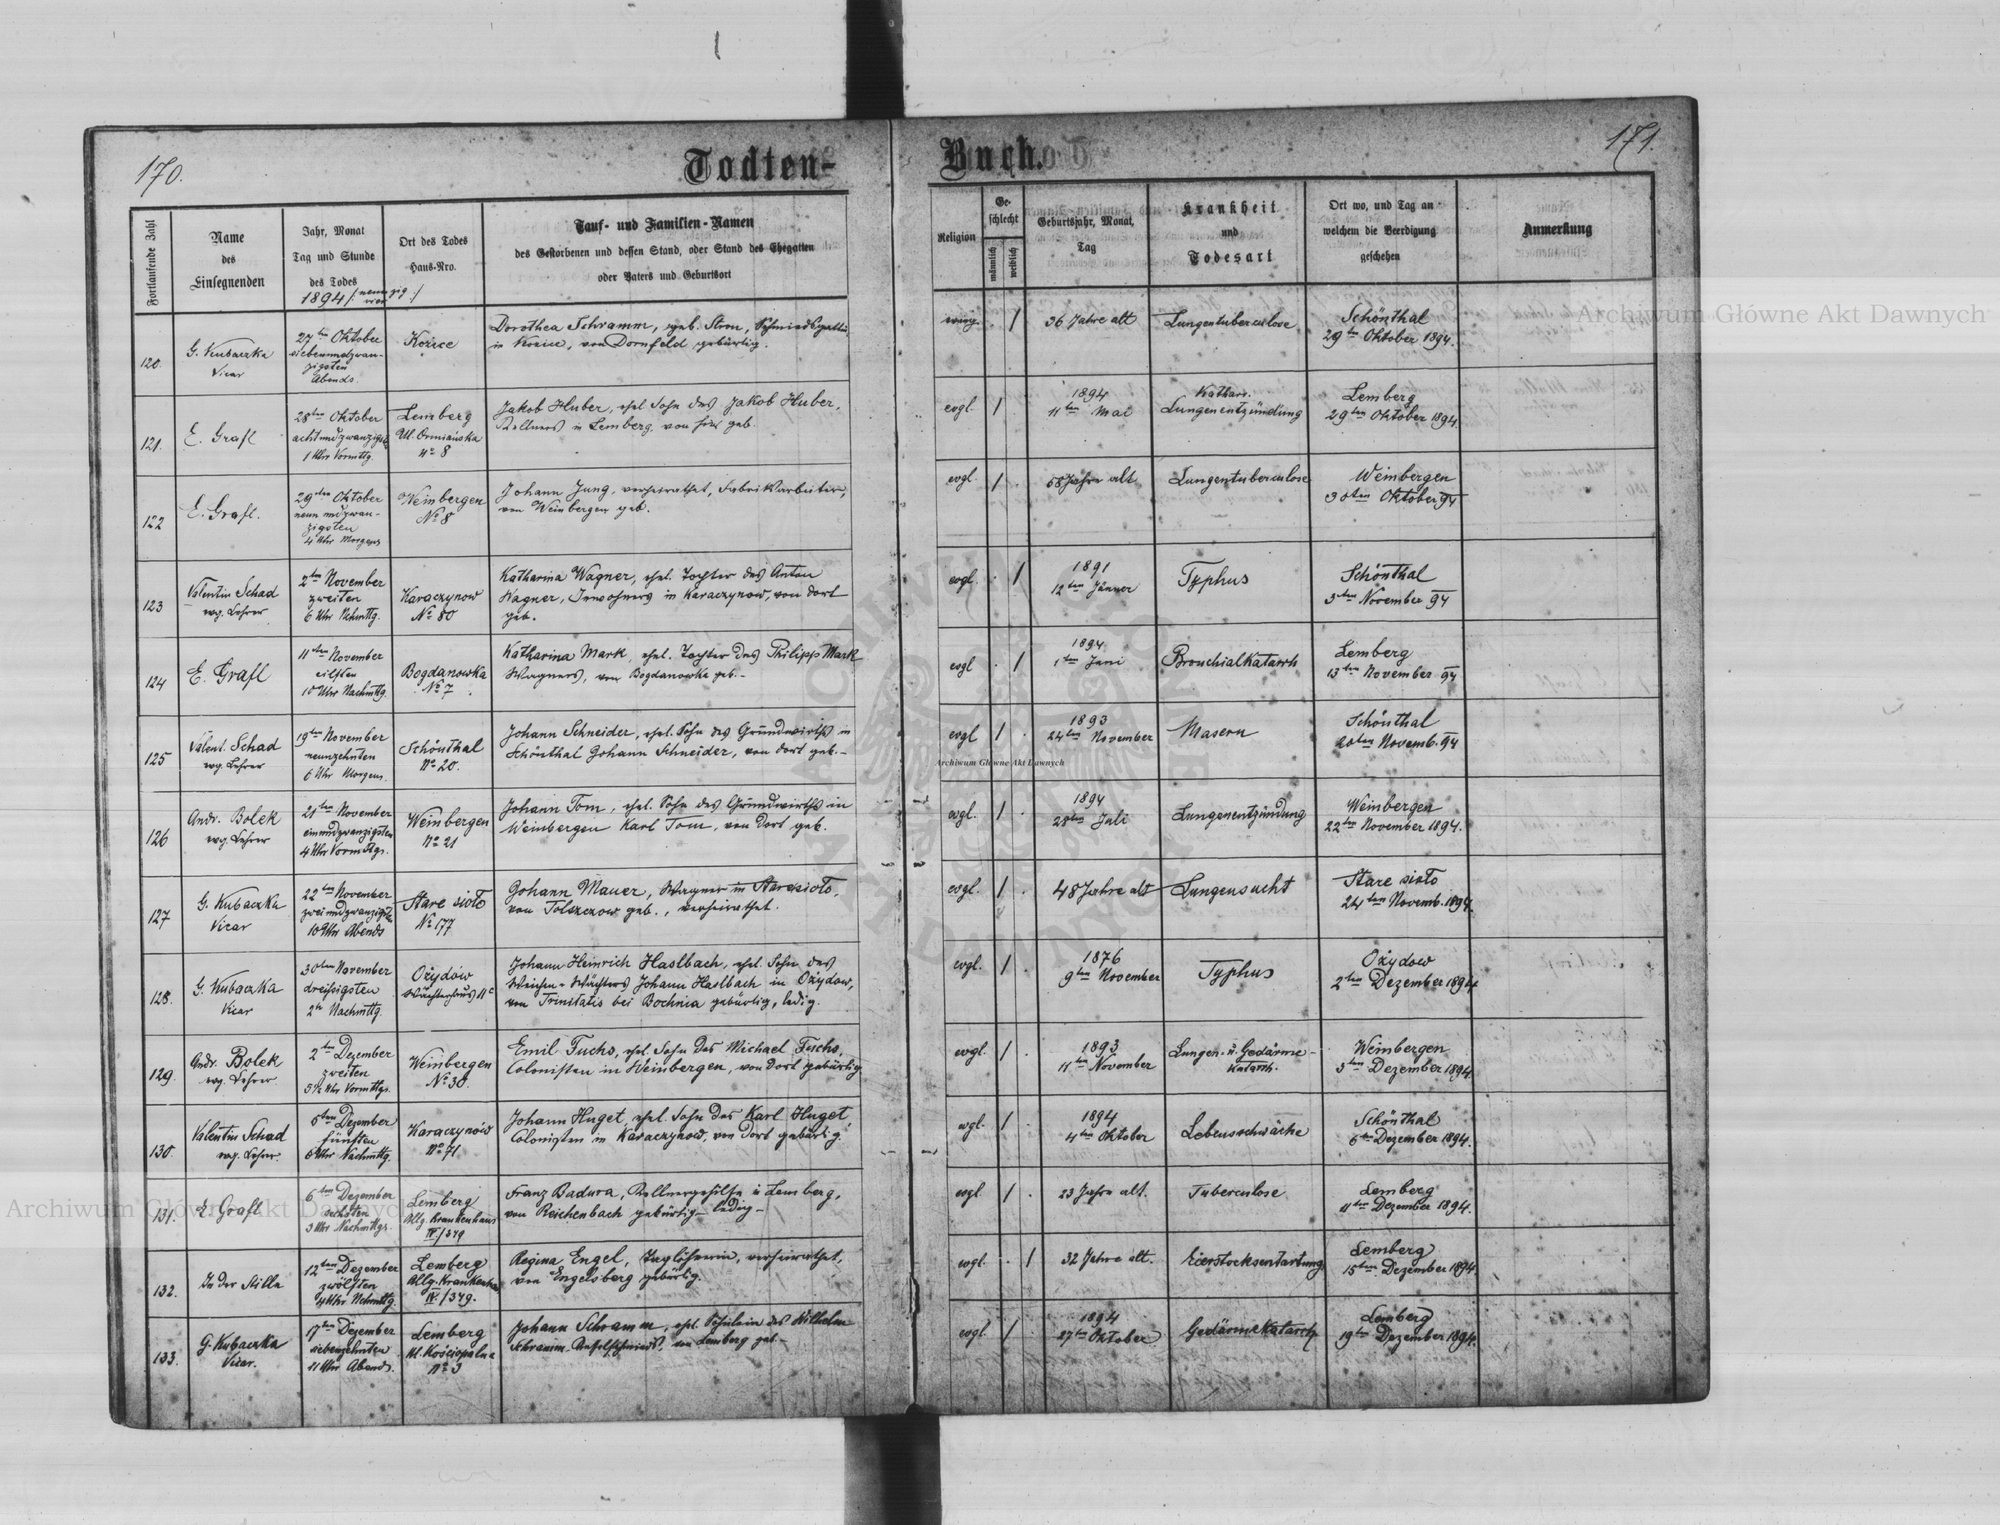 170.
Todten-
Buch.
171.
Fortlaufende Zahl
Name
des
Einsegnenden
Jahr, Monat
Tag und Stunde
des Todes
1894
Ort des Todes
Haus-Nro.
Tauf- und Familien-Namen
des Gestorbenen und dessen Stand, oder Stand des Ehegatten
oder Vaters und Geburtsort
Religion
Ge-
schlecht
männlich
weiblich
Geburtsjahr, Monat,
Tag
Krankheit
und
Todesart
Ort wo, und Tag an
welchem die Beerdigung
geschehen
Anmerkung
120.
G. Kubaczka
Vicar
27ten Oktober
siebenundzwan-
zigsten
Abends.
Dorothea Schramm, geb. Stron, Schmiedsgattin
in Kozice, von Dornfeld gebürtig.
/
36 Jahre alt
Lungentuberculose
Schönthal
29ten Oktober 1894.
121.
E. Grafl
28ten Oktober
achtundzwanzigsten
1 Uhr Vormttg.
Lemberg
Ul. Ormiańska
No 8
Jakob Huber, ehel. Sohn des Jakob Huber,
Kellners in Lemberg, von hier geb.
evgl.
/
1894
11ten Mai
Katharr.
Lungenentzündung
Lemberg
29ten Oktober 1894.
122
E. Grafl.
29sten Oktober
neunundzwan-
zigsten
4 Uhr Morgens
Weinbergen
No 8
Johann Jung, verheirathet, Fabriksarbeiter,
von Weinbergen geb.
evgl.
/
58 Jahre alt
Lungentuberculose
Weinbergen
30ten Oktober 94
123
Valentin Schad
evg. Lehrer
2ten November
zweiten
6 Uhr Nchmttg.
Karaczynow
No 80
Katharina Wagner, ehel. Tochter des Anton
Wagner, Inwohners in Karaczynow, von dort
geb.
evgl.
/
1891
12ten Jänner
Typhus
Schönthal
3ten November 94
124
E. Grafl
11ten November
eilften
10 Uhr Nachmttg.
Bogdanowka
No 7
Katharina Mark, ehel. Tochter des Philipp Mark
Wagners, von Bogdanowka geb.-
evgl
/
1894
1ten Juni
Bronchialkatarrh
Lemberg
13ten November 94
125
Valent. Schad
evg. Lehrer
19ten November
neunzehnten
6 Uhr Morgens.
Schönthal
No 20.
Johann Schneider, ehel. Sohn des Grundwirths in
Schönthal Johann Schneider, von dort geb.-
evgl
/
1893
24ten November
Masern
Schönthal
20ten Novemb. 94
126
Andr. Bolek
evg. Lehrer
21ten November
einundzwanzigsten
4 Uhr Vormttgs.
Weinbergen
No 21
Johann Tom, ehel. Sohn des Grundwirths in
Weinbergen Karl Tom, von dort geb.
evgl.
/
1894
28ten Juli
Lungenentzündung
Weinbergen
22ten November 1894.
127
G. Kubaczka
Vicar
22ten November
zweiundzwanzigsten
10 Uhr Abends
Stare sioło
No 177
Johann Mauer, Wagner in Staresioło,
von Tolszczow geb., verheirathet.
evgl.
/
48 Jahre alt
Lungensucht
Stare sioło
24ten Novemb. 1894.
128.
G. Kubaczka
Vicar
30ten November
dreissigsten
2h Nachmttg.
Ożydów
Wächterhaus
Johann Heinrich Haslbach, ehel. Sohn des
Weichen-Wächters Johann Haslbach in Ożydow,
von Trinitatis bei Bochnia gebürtig, ledig.
evgl.
/
1876
9ten November
Typhus
Ożydow
2ten Dezember 1894
129.
Andr. Bolek
evg. Lehrer
2ten Dezember
zweiten
5½ Uhr Vormttgs.
Weinbergen
No 30.
Emil Fuchs, ehel. Sohn des Michael Fuchs,
Colonisten in Weinbergen, von dort gebürtig
evgl.
/
1893
11ten November
Lungen- u. Gedärme-
Katarrh.
Weinbergen
3ten Dezember 1894
130.
Valentin Schad
evg. Lehrer.
5ten Dezember
fünften
6 Uhr Nachmttg.
Karaczynów
No 71
Johann Huget, ehel. Sohn des Karl Huget
Colonisten in Karaczynow, von dort gebürtig.
evgl.
/
1894
4ten Oktober
Lebensschwäche
Schönthal
6ten Dezember 1894.
131.
E. Grafl
6ten Dezember
sechsten
3 Uhr Nachmttgs.
Lemberg
Allg. Krankenhaus
IV./349
Franz Badura, Kellnergehilfe in Lemberg,
von Reichenbach gebürtig - ledig -
evgl
/
23 Jahre alt.
Tuberculose
Lemberg
11ten Dezember 1894.
132.
In der Stille
12ten Dezember
zwölften
4 Uhr Nchmttg.
Lemberg
Allg. Krankenhaus
IV./349.
Regina Engel, Taglöhnerin, verheirathet,
von Engelsberg gebürtig.
evgl.
/
32 Jahre alt.
Eierstocksentartung
Lemberg
15ten Dezember 1894.
133.
G. Kubaczka
Vicar.
17ten Dezember
siebenzehnten
11 Uhr Abends.
Lemberg
Ul. Kościopalna
No 3
Johann Schramm, ehel. Söhnlein des Wilhelm
Schramm, von Lemberg geb-
evgl.
/
1894
27ten Oktober
Gedärmekatarrh
Lemberg
19ten Dezember 1894.
Archiwum Główne Akt Dawnych
Archiwum Główne Akt Dawnych
Archiwum Główne Akt Dawnych